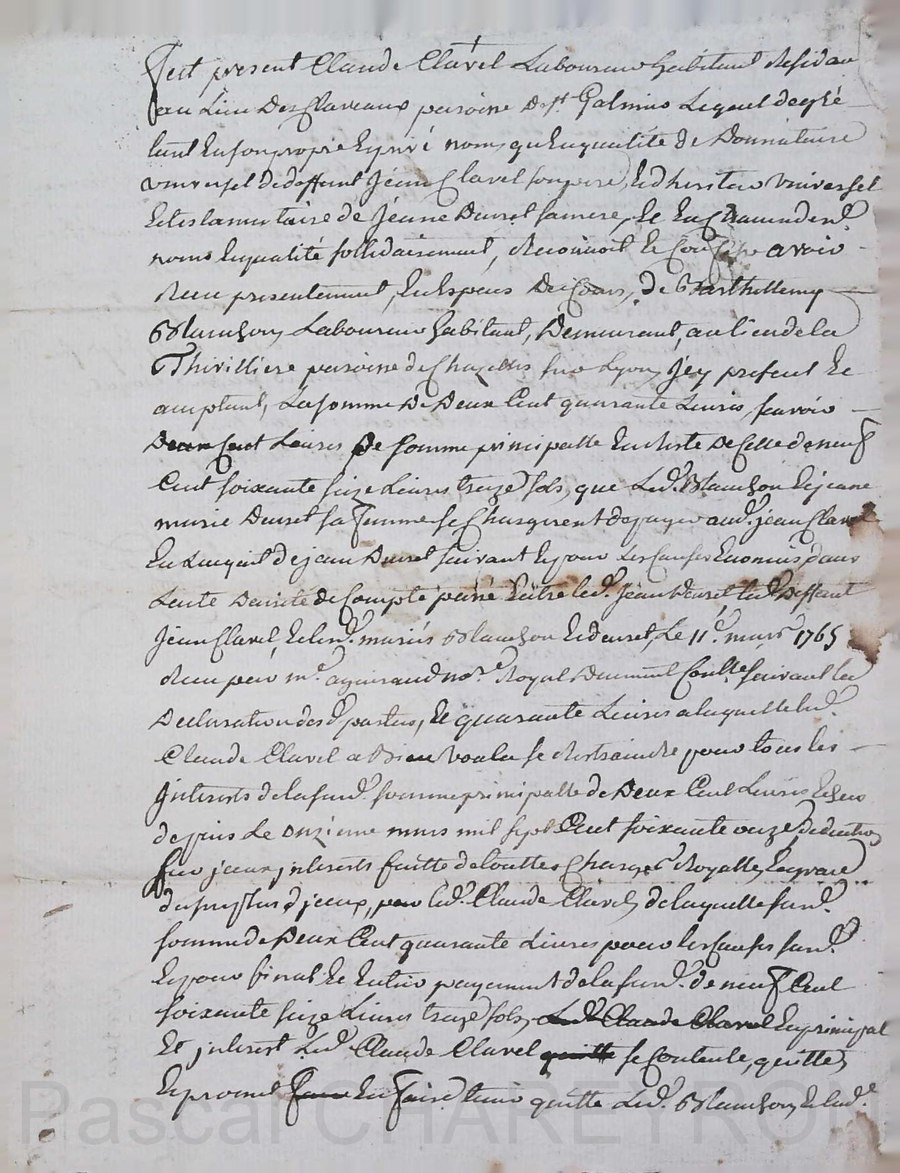 fut present Claude Clavel Laboureur habitant Residan
au Lieu Des Claveaux paroine De st Galmier Lequel de gré
tant En son propre Et privé noms qu'En qualité de Donnataire
universel de deffunt Jean Clavel son pere, Et d'heritier universel
Et testamentaire de Jeanne Duret sa mere, Et En Chacun desd.
noms Et qualité sollidairement, Reconnoit Et Confesse avoir
Receu presentement, En Especes De Cours, de Barthellemy
Blanchon Laboureur habitant, Demeurant, au lieu de la
Thivilliere paroine de Chazelles sur Lyon, Jcy present Et
acceptant, La somme De Deux Cent quarante Livres, scavoir
Deux Cent Livres De somme principalle En reste De Celle de neuf
Cent soixante seize Livres treize sols, que Led. Blanchon Et jeane
marie Duret sa femme se Chargerent de payer aud. jean Clavel
En L'acquit de jean Duret suivant Et pour Les Causes Enoncés dans
L'acte De arreté de Compte passé Entre led. Jean Duret Led. Deffunt
Jean Clavel, Et lesd. mariés Blanchon Et Duret, Le 11e. mars 1765
Receu par me. aguiraud nore. Royal suivant la
Declaration desd. parties, Et quarante Livres a laquelle led.
Claude Clavel a Bien voulu se Restraindre pour tous les
jnterests de la susd. somme principalle de Deux Cent Livres Echeu
depuis Le onzieme mars mil sept Cent soixante onze, deduction
sur jceux jnterests faitte de touttes Charges Royalles, Et grace
du surplus d'jceux, par led. Claude Clavel, de laquelle susd.
somme de Deux Cent quarante Livres pour les Causes susd.
Et pour final Et Entier payement de la susd. de neuf Cent
soixante seize Livres treize sols, Led. Claude Clavel En principal
Et jnterest Led. Claude Clavel quitte se Contente, quitte,
Et promet faire En faire tenir quitte Led. Blanchon, Et lade.
Pascal CHAREYRON